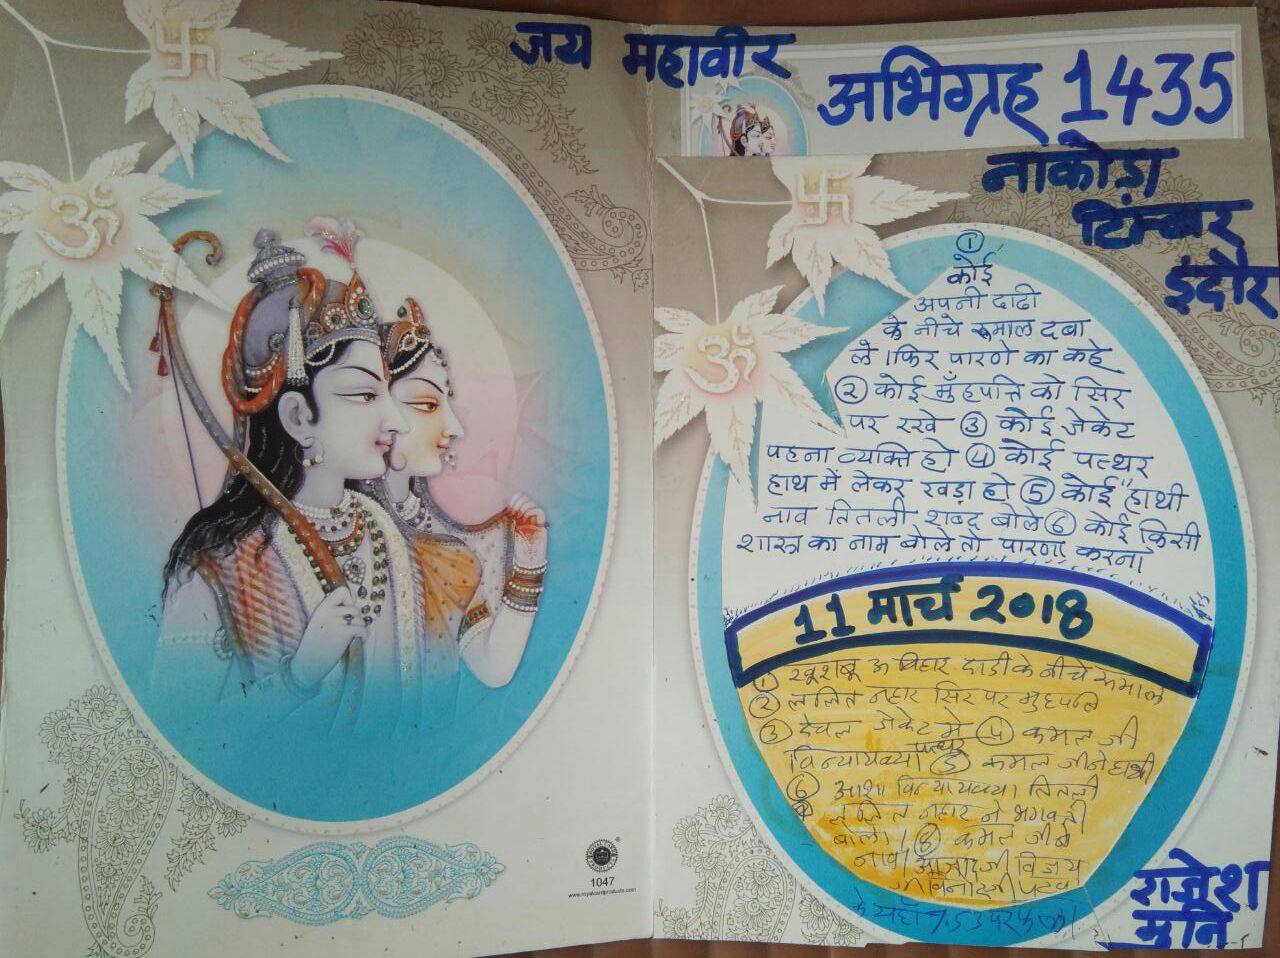 जय महावीर
अभिग्रह 1435
नाकोडा
टिम्बर
इंदौर
ॐ
ॐ
①
कोई
अपनी दाढी
के नीचे रुमाल दबा
ले । फिर पारणे का कहे
② कोई मुँहपत्ति को सिर
पर रखे ③ कोई जेकेट
पहना व्यक्ति हो ④ कोई पत्थर
हाथ में लेकर खड़ा हो ⑤ कोई "हाथी
नाव तितली शब्द बोले ⑥ कोई किसी
शास्त्र का नाम बोले तो पारणा करना
11 मार्च 2018
① खूशबू दाडी के नीचे रुमाल
② ललित नहार सिर पर मुहपत्ति
③ देवल जेकेट मे ④ कमल जी
विनायक्या पत्थर ⑤ कमल जी ने हाथी
⑥ आशा विनायक्या तितली
ललित नहार ने भगवती
बोला । ⑧ कमल जी ने
नाव । जी विजय
के यहाँ
राजेश
मुनि
1047
www.royalcardproducts.com